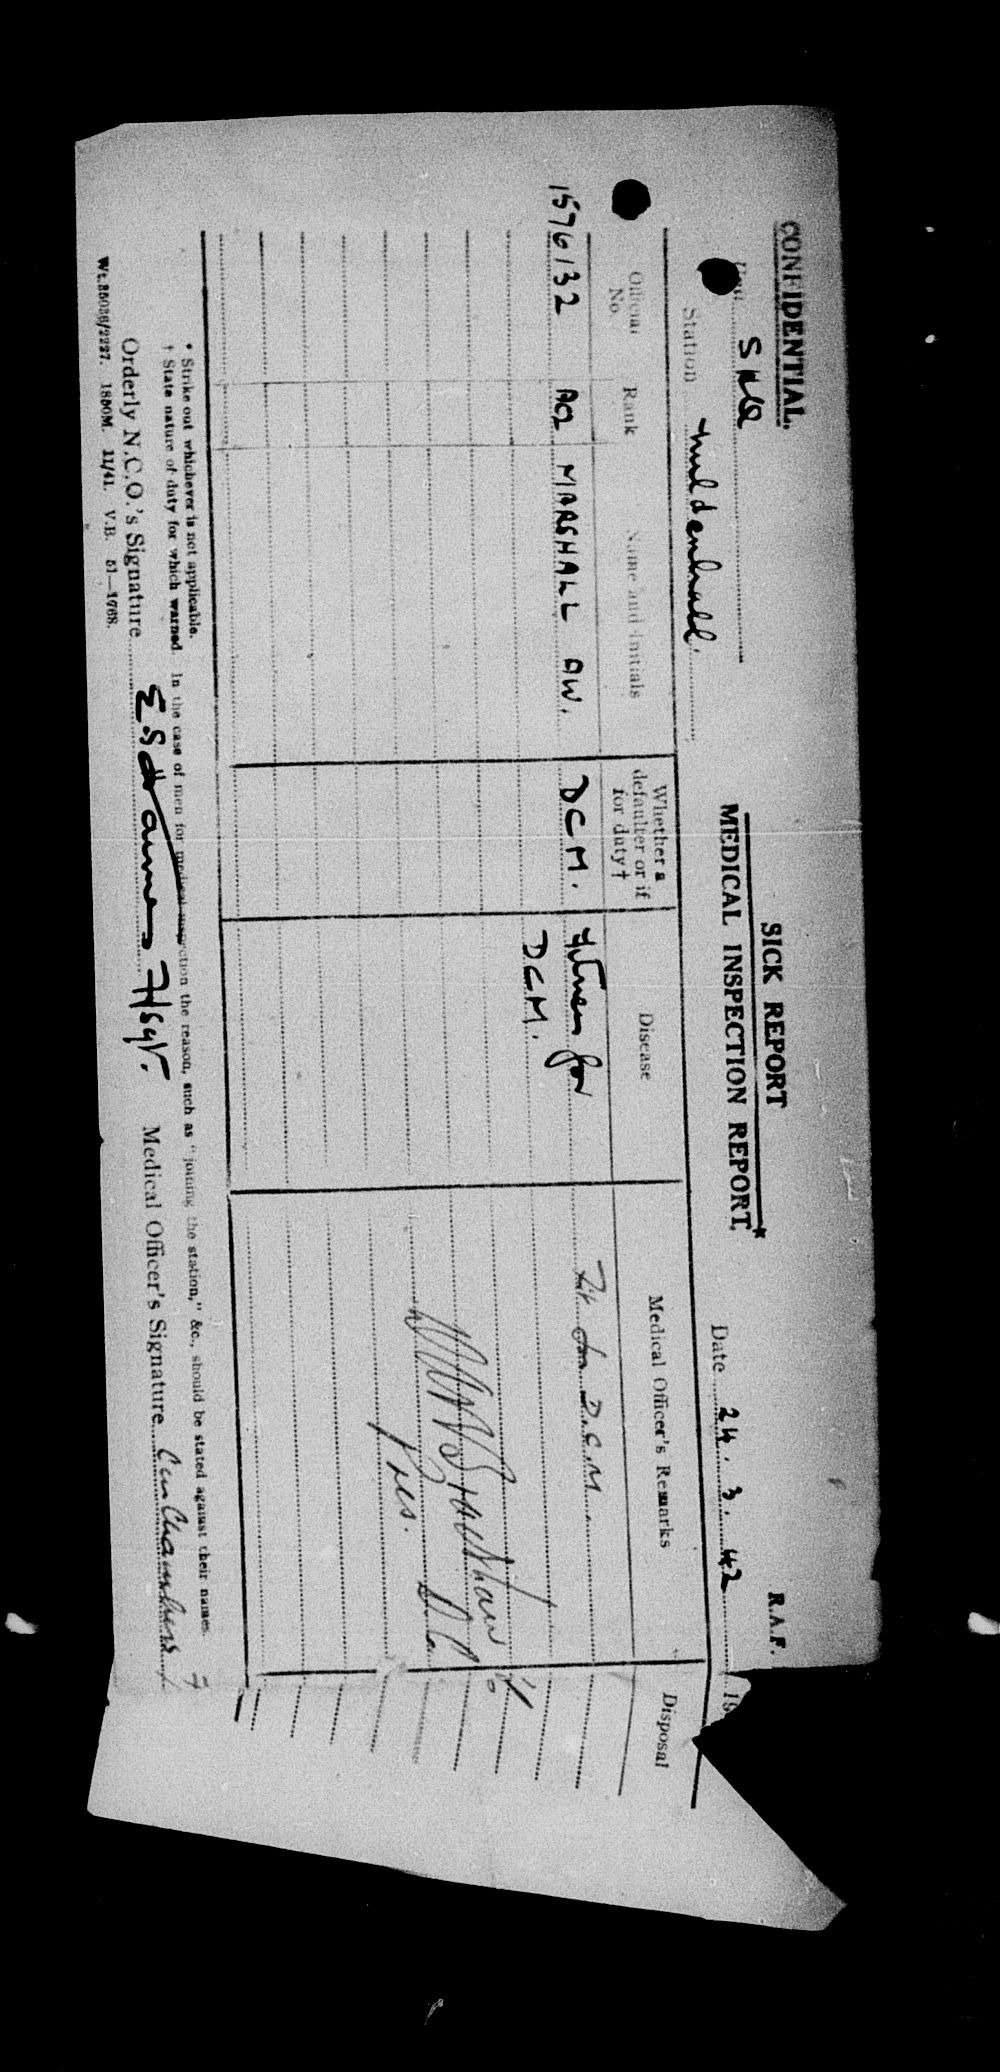 CONFIDENTIAL.
SICK REPORT
R.A.F.
MEDICAL INSPECTION REPORT.*
Unit SHQ
Date 24. 3. 42 19
Station Mildenhall.
Official No. Rank Name and Initials Whether a defaulter or if for duty † Disease Medical Officer's Remarks Disposal
1576132 AC2 MARSHALL AW. DCM. Fitness for Fit for D.C.M.
DCM.
Pres.
* Strike out whichever is not applicable.
† State nature of duty for which warned. In the case of men for medical inspection the reason, such as "joining the station," &c., should be stated against their names.
Orderly N.C.O.'s Signature F/Sgt. Medical Officer's Signature Chambers
Wt.25036/2227. 1880M. 11/41. V.B. 51—1768.